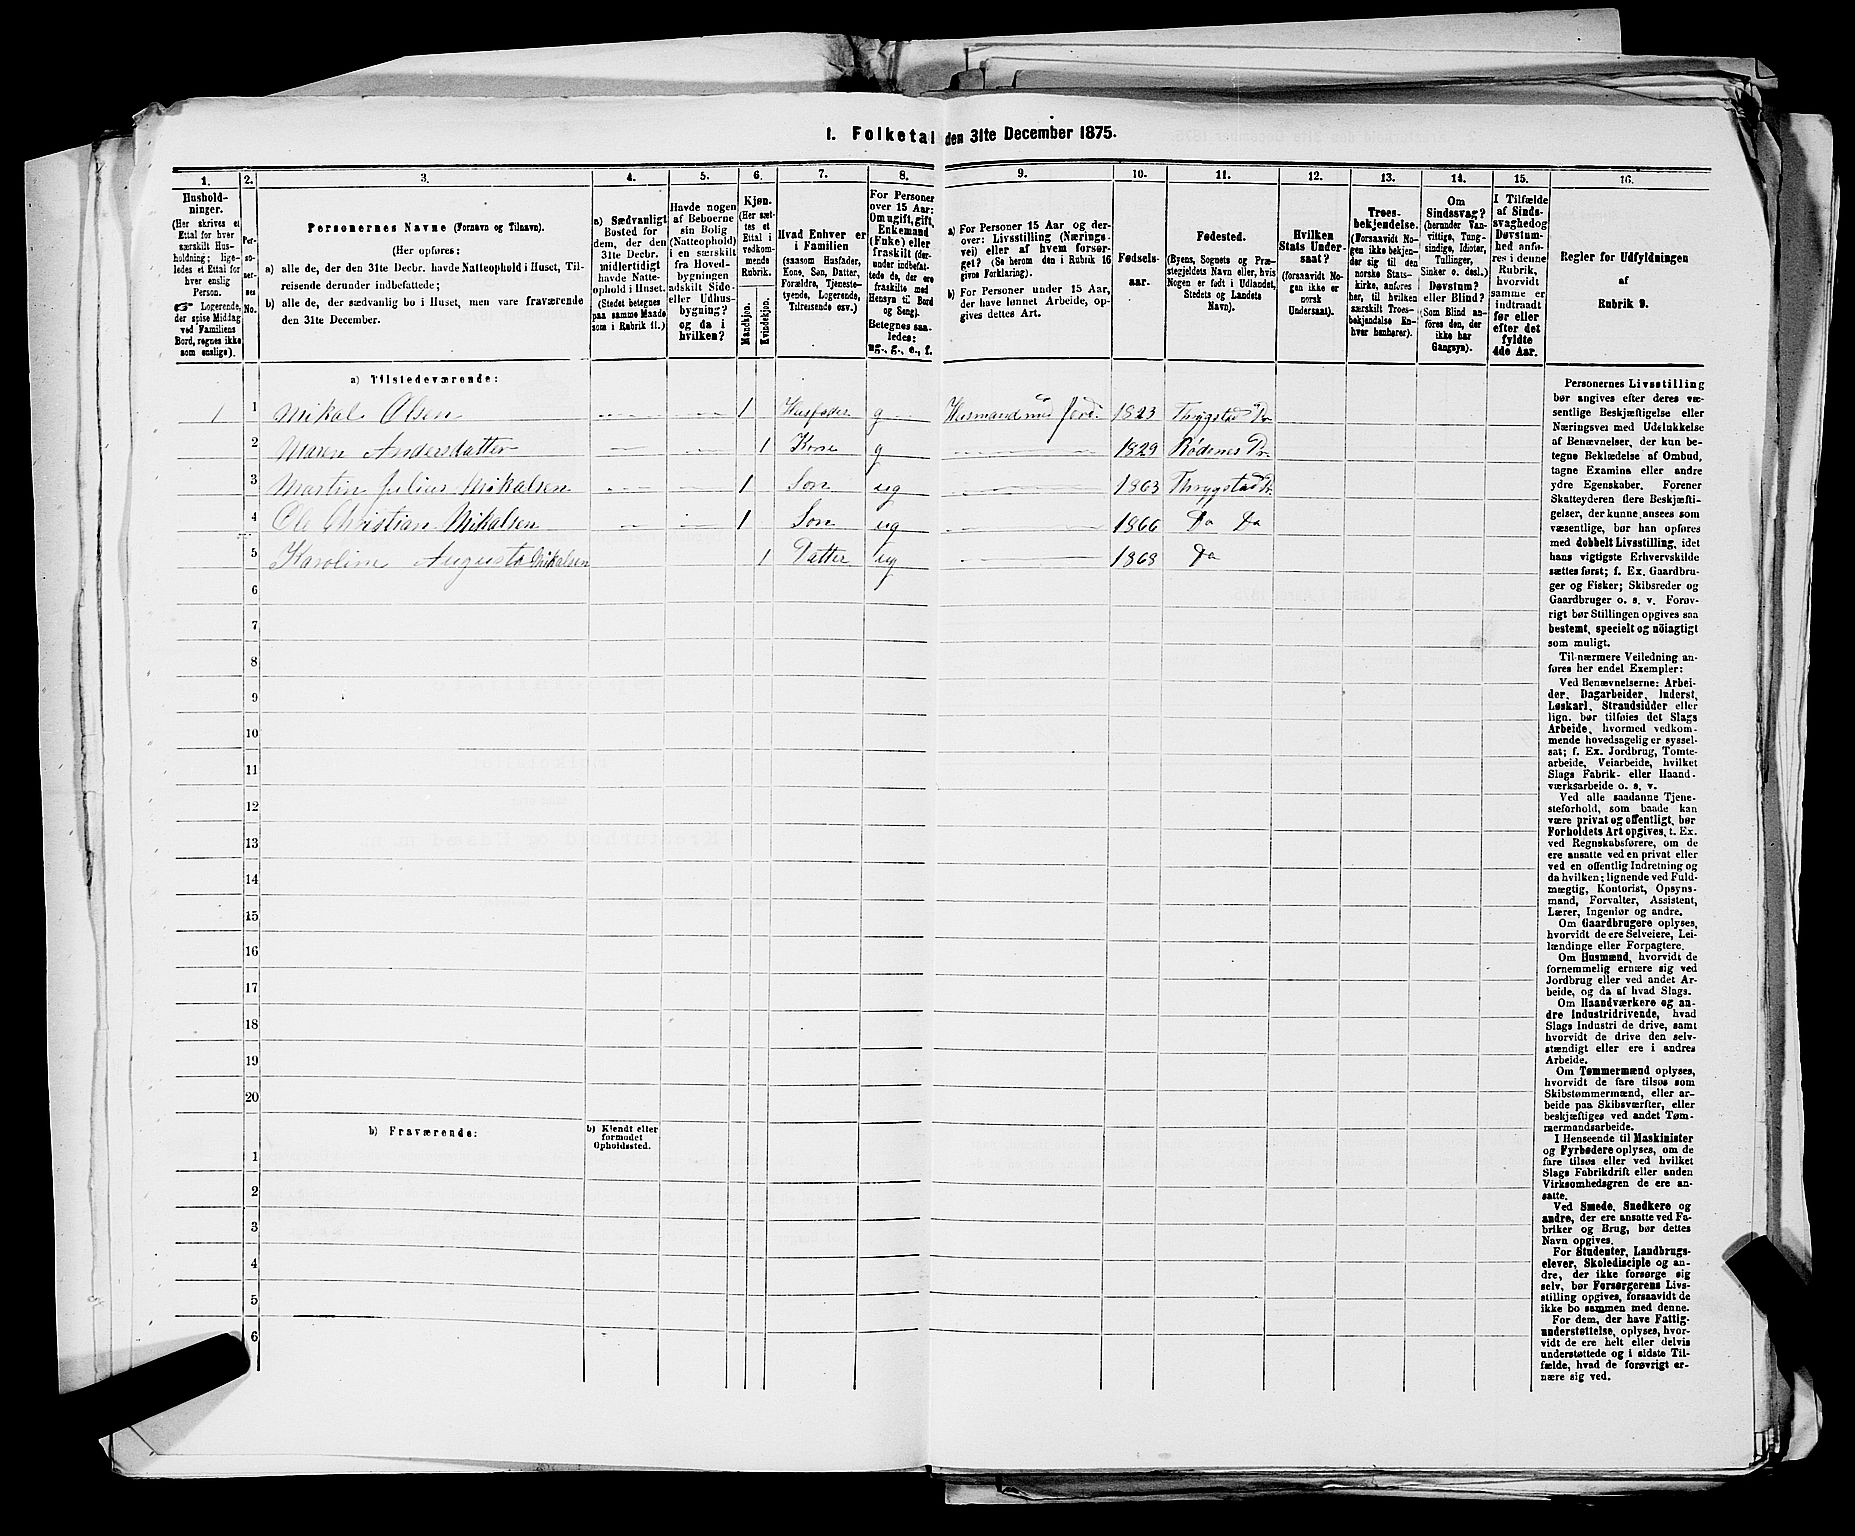 1. Folketal den 31te December 1875.
1.
Hushold-
ninger.
(Her skrives et
Ettal for hver
særskilt Hus-
holdning; lige-
ledes et Ettal for
hver enslig
Person.
Logerende,
der spise Middag
ved Familiens
Bord, regnes ikke
som enslige).
2.
Per-
so-
ner-
nes
No.
3.
Personernes Navne (Fornavn og Tilnavn).
(Her opføres:
a) alle de, der den 31te Decbr. havde Natteophold i Huset, Til-
reisende derunder indbefattede;
b) alle de, der sædvanlig bo i Huset, men vare fraværende
den 31te December.
4.
a) Sædvanligt
Bosted for
dem, der den
31te Decbr.
midlertidigt
havde Natte-
ophold i Huset.
(Stedet betegnes
paa samme Maade
som i Rubrik 11.)
5.
Havde nogen
af Beboerne
sin Bolig
(Natteophold)
i en særskilt
fra Hoved-
bygningen
adskilt Side-
eller Udhus-
bygning?
og da i
hvilken?
6.
Kjøn.
(Her sæt-
tes et
Ettal i
vedkom-
mende
Rubrik.
Mandkjøn.
Kvindekjøn.
7.
Hvad Enhver er
i Familien
(saasom Husfader,
Kone, Søn, Datter,
Forældre, Tjeneste-
tyende, Logerende,
Tilreisende osv.)
8.
For Personer
over 15 Aar:
Om ugift, gift,
Enkemand
(Enke) eller
fraskilt (der-
under indbefat-
tede de, der ere
fraskilte med
Hensyn til Bord
og Seng).
Betegnes saa-
ledes:
ug., g., e., f.
9.
a) For Personer 15 Aar og der-
over: Livsstilling (Nærings-
vei) eller af hvem forsør-
get? (Se herom den i Rubrik 16
givne Forklaring).
b) For Personer under 15 Aar,
der have lønnet Arbeide, op-
gives dettes Art.
10.
Fødsels-
aar.
11.
Fødested.
(Byens, Sognets og Præ-
stegjeldets Navn eller, hvis
Nogen er født i Udlandet,
Stedets og Landets
Navn).
12.
Hvilken
Stats Under-
saat?
(forsaavidt No-
gen ikke er
norsk
Undersaat).
13.
Troes-
bekjendelse.
(Forsaavidt No-
gen ikke bekjen-
der sig til den
norske Stats-
kirke, anføres
her, til hvilken
særskilt Troes-
bekjendelse En-
hver henhører).
14.
Om
Sindssvag?
(herunder Van-
vittige, Tung-
sindige, Idioter,
Tullinger,
Sinker o. desl.)
Døvstum?
eller Blind?
(Som Blind an-
føres den, der
ikke har
Gangsyn).
15.
I Tilfælde
af Sinds-
svaghed og
Døvstum-
hed anfø-
res i denne
Rubrik,
hvorvidt
samme er
indtraadt
før eller
efter det
fyldte
4de Aar.
16.
Regler for Udfyldningen
af
Rubrik 9.
a) Tilstedeværende:
1 1 Mikal Olsen 1 Husfader g Husmand med Jord 1823 Thrygstad Pr
2 Maren Andersdatter 1 Kone g 1829 Rødenes Pr
3 Martin Julius Mikalsen 1 Søn ug 1863 Thrygstad Pr
4 Ole Christian Mikalsen 1 Søn ug 1866 Do Do
5 Karoline Augusta Mikalsen 1 Datter ug 1868 Do
6
7
8
9
10
11
12
13
14
15
16
17
18
19
20
b) Fraværende:
b) Kjendt eller
formodet
Opholdssted.
1
2
3
4
5
6
Personernes Livsstilling
bør angives efter deres væ-
sentlige Beskjæftigelse eller
Næringsvei med Udelukkelse
af Benævnelser, der kun be-
tegne Beklædelse af Ombud,
tagne Examina eller andre
ydre Egenskaber. Forener
Skatteyderen flere Beskjæfti-
gelser, der kunne ansees som
væsentlige, bør han opføres
med dobbelt Livsstilling, idet
hans vigtigste Erhvervskilde
sættes først; f. Ex. Gaardbru-
ger og Fisker; Skibsreder og
Gaardbruger o. s. v. Forøv-
rigt bør Stillingen opgives saa
bestemt, specielt og nöiagtigt
som muligt.
Til nærmere Veiledning an-
føres her endel Exempler:
Ved Benævnelserne: Arbei-
der, Dagarbeider, Inderst,
Løskarl, Strandsidder eller
lign. bør tilføies det Slags
Arbeide, hvormed vedkom-
mende hovedsagelig er syssel-
sat; f. Ex. Jordbrug, Tomte-
arbeide, Veiarbeide, hvilket
Slags Fabrik- eller Haand-
værksarbeide o. s. v.
Ved alle saadanne Tjene-
steforhold, som baade kan
være privat og offentligt, bør
Forholdets Art opgives, t. Ex.
ved Regnskabsførere, om de
ere ansatte ved en privat eller
ved en offentlig Indretning og
da hvilken; lignende ved Fuld-
mægtig, Kontorist, Opsyns-
mand, Forvalter, Assistent,
Lærer, Ingeniør og andre.
Om Gaardbrugere oplyses,
hvorvidt de ere Selveiere, Lei-
lændinge eller Forpagtere.
Om Husmænd, hvorvidt de
fornemmelig ernære sig ved
Jordbrug eller ved andet Ar-
beide, og da af hvad Slags.
Om Haandværkere og an-
dre Industridrivende, hvad
Slags Industri de drive, samt
hvorvidt de drive den selv-
stændigt eller ere i andres
Arbeide.
Om Tømmermænd oplyses,
hvorvidt de fare tilsøs som
Skibstømmermænd, eller ar-
beide paa Skibsværfter, eller
beskjæftiges ved andet Tøm-
mermandsarbeide.
I Henseende til Maskinister
og Fyrbødere oplyses, om de
fare tilsøs eller ved hvilket
Slags Fabrikdrift eller anden
Virksomhedsgren de ere an-
satte.
Ved Smede, Snedkere og
andre, der ere ansatte ved Fa-
briker og Brug, bør dettes
Navn opgives.
For Studenter, Landbrugs-
elever, Skoledisciple og an-
dre, der ikke forsørge sig
selv, bør Forsørgerens Livs-
stilling opgives, forsaavidt de
ikke bo sammen med denne.
For dem, der have Fattig-
understøttelse, oplyses, hvor-
vidt de ere helt eller delvis
understøttede og i sidste Til-
fælde, hvad de forøvrigt er-
nære sig ved.